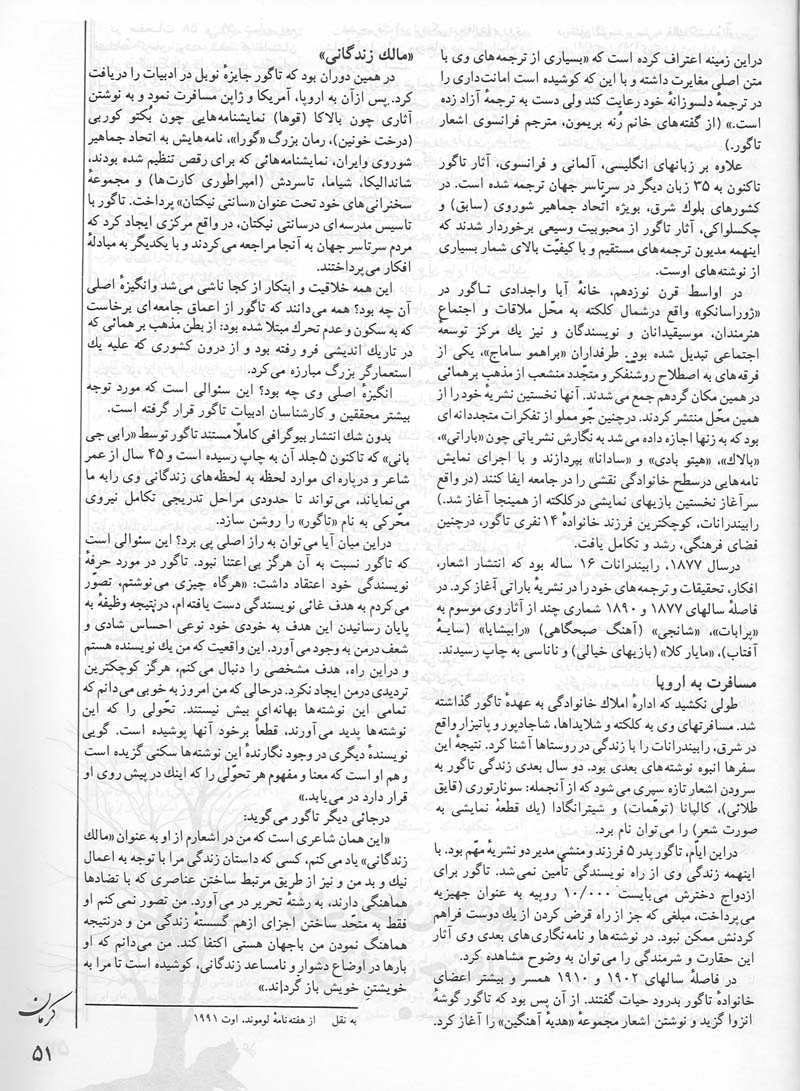 دراین زمینه اعتراف کرده است که «بسیاری از ترجمه‌های وی با
متن اصلی مغایرت داشته و با این که کوشیده است امانت‌داری را
در ترجمهٔ دلسوزانهٔ خود رعایت کند ولی دست به ترجمهٔ آزاد زده
است.» (از گفته‌های خانم رُنه بریمون، مترجم فرانسوی اشعار
تاگور.)
علاوه بر زبانهای انگلیسی، آلمانی و فرانسوی، آثار تاگور
تاکنون به ۳۵ زبان دیگر در سرتاسر جهان ترجمه شده است. در
کشورهای بلوك شرق، بویژه اتّحاد جماهیر شوروی (سابق) و
چکسلواکی، آثار تاگور از محبوبیت وسیعی برخوردار شدند که
اینهمه مدیون ترجمه‌های مستقیم و با کیفیّت بالای شمار بسیاری
از نوشته‌های اوست.
در اواسط قرن نوزدهم، خانهٔ آبا واجدادی تـاگور در
«ژوراسانکو» واقع درشمال کلکته به محّل ملاقات و اجتماع
هنرمندان، موسیقیدانان و نویسندگان و نیز یك مرکز توسعهٔ
اجتماعی تبدیل شده بود. طرفداران «براهمو ساماج»، یکی از
فرقه‌های به اصطلاح روشنفکر و متجّدد منشعب از مذهب برهمائی
در همین مکان گردهم جمع می شدند. آنها نخستین نشریهٔ خود را از
همین محّل منتشر کردند. درچنین جّو مملو از تفکرات متجددانه ای
بود که به زنها اجازه داده می شد به نگارش نشریاتی چون «باراتی»،
«بالاك»، «هیتو بادی» و «سادانا» بپردازند و با اجرای نمایش
نامه‌هایی درسطح خانوادگی نقشی را در جامعه ایفا کنند (در واقع
سرآغاز نخستین بازیهای نمایشی درکلکته از همینجا آغاز شد.)
رابیندرانات، کوچکترین فرزند خانوادهٔ ۱۴نفری تاگور، درچنین
فضای فرهنگی، رشد و تکامل یافت.
درسال ۱۸۷۷، رابیندرانات ۱۶ ساله بود که انتشار اشعار،
افکار، تحقیقات و ترجمه‌های خود را در نشریهٔ باراتی آغاز کرد. در
فاصلهٔ سالهای ۱۸۷۷ و ۱۸۹۰ شماری چند از آثار وی موسوم به
«پرابات»، «شانجی» (آهنگ صبحگاهی) «رابیشایا» (سایـهٔ
آفتاب)، «مایار کلا» (بازیهای خیالی) و ناناسی به چاپ رسیدند.
مسافرت به اروپا
طولی نکشید که ادارهٔ املاك خانوادگی به عهدهٔ تاگور گذاشته
شد. مسافرتهای وی به کلکته و شلایداها، شاجادپور و پاتیزار واقع
در شرق، رابیندرانات را با زندگی در روستاها آشنا کرد. نتیجهٔ این
سفرها انبوه نوشته‌های بعدی بود. دو سال بعدی زندگی تاگور به
سرودن اشعار تازه سپری می‌شود که از آنجمله: سونارتوری (قایق
طلائی)، کالپانا (توهّمات) و شیترانگادا (یك قطعهٔ نمایشی به
صورت شعر) را می‌توان نام برد.
دراین ایّام، تاگور پدر ۵ فرزند و منشی مدیر دو نشریهٔ مهّم بود. با
اینهمه زندگی وی از راه نویسندگی تأمین نمی‌شد. تاگور برای
ازدواج دخترش می‌بایست ۱۰/۰۰۰ روپیه به عنوان جهیزیه
می‌پرداخت، مبلغی که جز از راه قرض کردن از یك دوست فراهم
کردنش ممکن نبود. در نوشته‌ها و نامه‌نگاری‌های بعدی وی آثار
این حقارت و شرمندگی را می‌توان به وضوح مشاهده کرد.
در فاصلهٔ سالهای ۱۹۰۲ و ۱۹۱۰ همسر و بیشتر اعضای
خانوادهٔ تاگور بدرود حیات گفتند. از آن پس بود که تاگور گوشهٔ
انزوا گزید و نوشتن اشعار مجموعهٔ «هدیهٔ آهنگین» را آغاز کرد.
«مالك زندگانی»
در همین دوران بود که تاگور جایزهٔ نوبل در ادبیات را دریافت
کرد. پس ازآن به اروپا، آمریکا و ژاپن مسافرت نمود و به نوشتن
آثاری چون بالاکا (قوها) نمایشنامه‌هایی چون بُکتو کوربی
(درخت خونین)، رمان بزرگ «گورا»، نامه‌هایش به اتحاد جماهیر
شوروی وایران، نمایشنامه‌هائی که برای رقص تنظیم شده بودند،
شاندالیکا، شیاما، تاسردش (امپراطوری کارت‌ها) و مجموعهٔ
سخنرانی‌های خود تحت عنوان «سانتی نیکتان» پرداخت. تاگور با
تاسیس مدرسه‌ای درسانتی نیکتان، در واقع مرکزی ایجاد کرد که
مردم سرتاسر جهان به آنجا مراجعه می‌کردند و با یکدیگر به مبادلهٔ
افکار می‌پرداختند.
این همه خلاقیت و ابتکار از کجا ناشی می‌شد وانگیزهٔ اصلی
آن چه بود؟ همه می‌دانند که تاگور از اعماق جامعه‌ای برخاست
که به سکون و عدم تحرك مبتلا شده بود: از بطن مذهب برهمائی که
در تاریك اندیشی فرو رفته بود و از درون کشوری که علیه یك
استعمارگر بزرگ مبارزه می‌کرد.
انگیزهٔ اصلی وی چه بود؟ این سئوالی است که مورد توجه
بیشتر محققین و کارشناسان ادبیات تاگور قرار گرفته است.
بدون شك انتشار بیوگرافی کاملاً مستند تاگور توسط «رابی جی
بانی» که تاکنون ۵جلد آن به چاپ رسیده است و ۴۵ سال از عمر
شاعر و درباره‌ای موارد لحظه به لحظه‌های زندگانی وی رابه ما
می‌نمایاند، می‌تواند تا حدودی مراحل تدریجی تکامل نیروی
محّرکی به نام «تاگور» را روشن سازد.
دراین میان آیا می‌توان به راز اصلی پی برد؟ این سئوالی است
که تاگور نسبت به آن هرگز بی‌اعتنا نبود. تاگور در مورد حرفهٔ
نویسندگی خود اعتقاد داشت: «هرگاه چیزی می‌نوشتم، تصوّر
می‌کردم به هدف غائی نویسندگی دست یافته‌ام، درنتیجه وظیفهٔ به
پایان رسانیدن این هدف به خودی خود نوعی احساس شادی و
شعف درمن به وجود می آورد. این واقعیت که من یك نویسنده هستم
و دراین راه، هدف مشخصی را دنبال می‌کنم، هرگز کوچکترین
تردیدی درمن ایجاد نکرد. درحالی که من امروز به خوبی می‌دانم که
تمامی این نوشته‌ها بهانه‌ای بیش نیستند. تحّولی را که این
نوشته‌ها پدید می‌آورند، قطعاً برخود آنها پوشیده است. گویی
نویسندهٔ دیگری در وجود نگارندهٔ این نوشته‌ها سکنی گزیده است
و هم او است که معنا و مفهوم هر تحّولی را که اینك در پیش روی او
قرار دارد در می‌یابد.»
درجائی دیگر تاگور می‌گوید:
«این همان شاعری است که من در اشعارم از او به عنوان «مالك
زندگانی» یاد می‌کنم، کسی که داستان زندگی مرا با توجه به اعمال
نیك و بد من و نیز از طریق مرتبط ساختن عناصری که با تضادها
هماهنگی دارند، به رشتهٔ تحریر در می‌آورد. من تصور نمی‌کنم او
فقط به متّحد ساختن اجزای ازهم گسستهٔ زندگی من و درنتیجه
هماهنگ نمودن من باجهان هستی اکتفا کند. من می‌دانم که او
بارها در اوضاع دشوار و نامساعد زندگانی، کوشیده است تا مرا به
خویشتنِ خویش باز گرداند.»
به نقل از هفته‌نامهٔ لوموند، اوت ۱۹۹۱
کرمان
۵۱